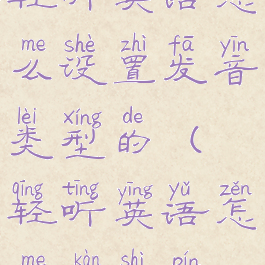 轻听英语怎
me shè zhì fā yīn
么设置发音
lèi xíng de
类型的（
qīng tīng yīng yǔ zěn
轻听英语怎
me kàn shì pín